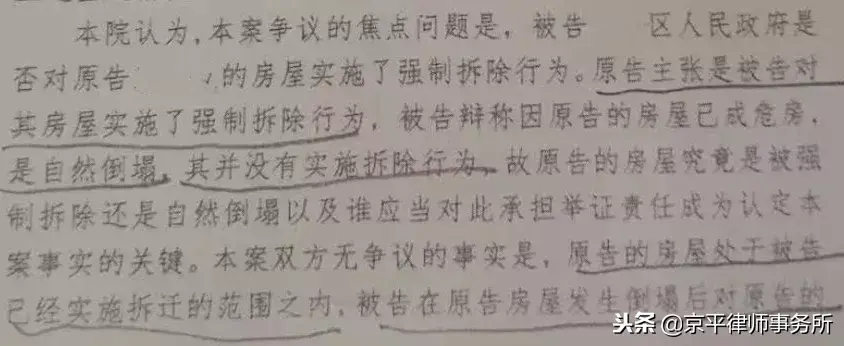 本院认为,本案争议的焦点问题是,被告 区人民政府是
否对原告 的房屋实施了强制拆除行为。原告主张是被告对
其房屋实施了强制拆除行为,被告辩称因原告的房屋已成危房,
是自然倒塌,其并没有实施拆除行为,故原告的房屋究竟是被强
制拆除还是自然倒塌以及谁应当对此承担举证责任成为认定本
案事实的关键。本案双方无争议的事实是,原告的房屋处于被告
已经实施拆迁的范围之内,被告在原告房屋发生倒塌后对原告的
头条 @京平律师事务所